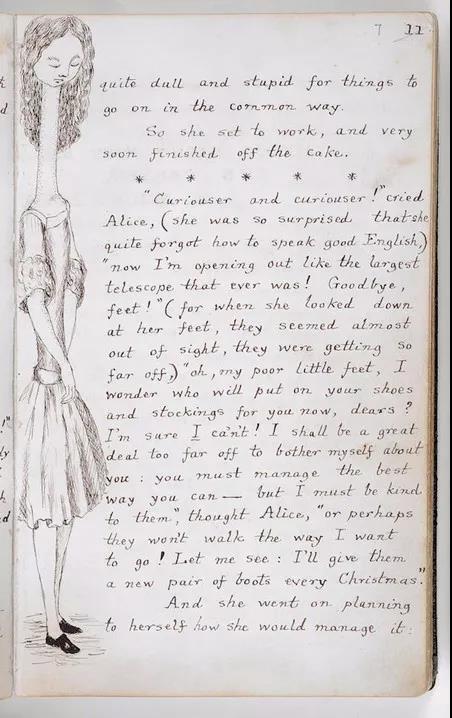 7 11
quite dull and stupid for things to
go on in the common way.
So she set to work, and very
soon finished off the cake.
* * * * *
"Curiouser and curiouser!" cried
Alice, (she was so surprised that she
quite forgot how to speak good English,)
"now I'm opening out like the largest
telescope that ever was! Goodbye,
feet!" (for when she looked down
at her feet, they seemed almost
out of sight, they were getting so
far off,) "oh, my poor little feet, I
wonder who will put on your shoes
and stockings for you now, dears?
I'm sure I can't! I shall be a great
deal too far off to bother myself about
you: you must manage the best
way you can — but I must be kind
to them", thought Alice, "or perhaps
they won't walk the way I want
to go! Let me see: I'll give them
a new pair of boots every Christmas."
And she went on planning
to herself how she would manage it: